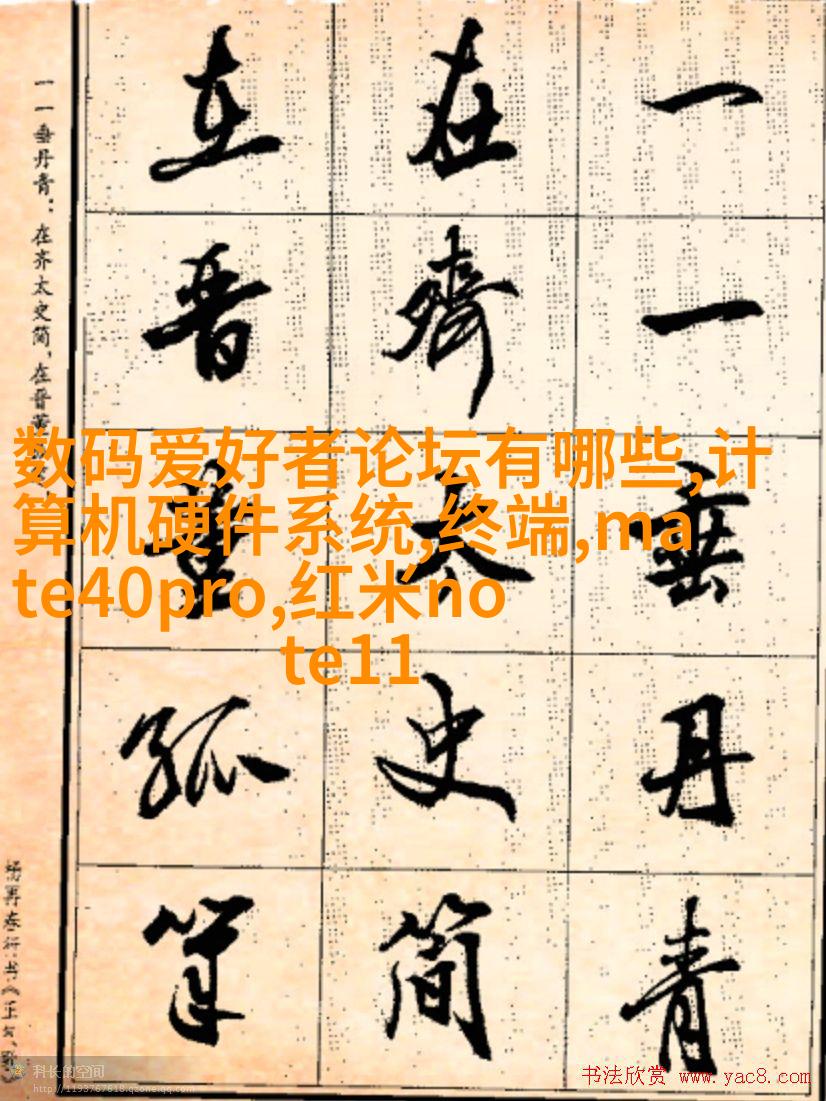 一一垂丹青
在齐太史简
在晋董狐笔
一一垂丹青：在齐太史简，在晋董
数码爱好者论坛有哪些,计
算机硬件系统,终端,ma
te40pro,红米no
te11
科长的空间
http://1193767618.qzone.qq.com
书法欣赏 www.yac8.com